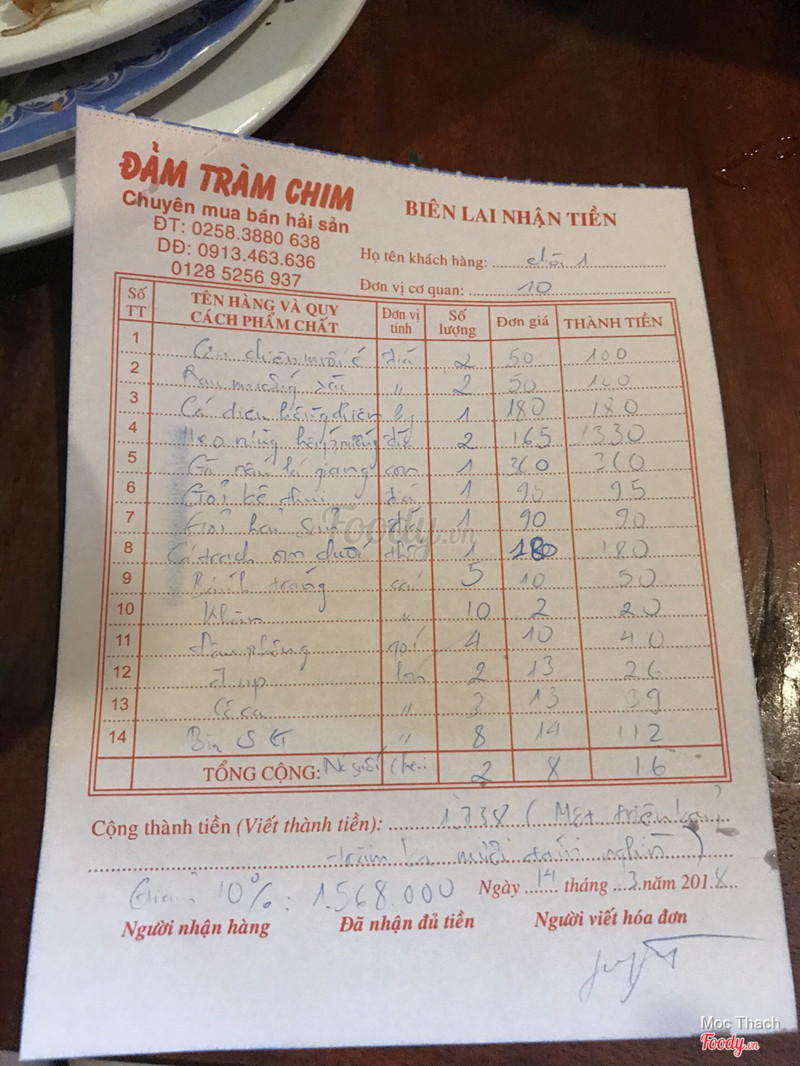 ĐẦM TRÀM CHIM
Chuyên mua bán hải sản
ĐT: 0258.3880 638
DĐ: 0913.463.636
0128 5256 937
BIÊN LAI NHẬN TIỀN
Họ tên khách hàng: chòi 1
Đơn vị cơ quan: 10
Số TT TÊN HÀNG VÀ QUY CÁCH PHẨM CHẤT Đơn vị tính Số lượng Đơn giá THÀNH TIỀN
1 Cơm chiên muối é dĩa 2 50 100
2 Rau muống xào " 2 50 100
3 Cá diêu hồng chiên kg 1 180 180
4 Heo nướng dĩa 2 165 330
5 Gà nấu lá giang con 1 360 360
6 Gỏi 1 95
7 Gỏi 1 90 90
8 Cá trach om chuối thố 1 180 180
9 Bánh tráng cái 5 10 50
10 Khăn " 10 2 20
11 Đậu phộng gói 4 10 40
12 7 up lon 2 13 26
13 " 3 13 39
14 Bia S G " 8 14 112
TỔNG CỘNG: Nc suối chai 2 8 16
Cộng thành tiền (Viết thành tiền): 1.738 ( Một triệu bảy
trăm ba mươi tám nghìn )
Giảm 10% : 1.568.000 Ngày 14 tháng 3 năm 2018
Người nhận hàng Đã nhận đủ tiền Người viết hóa đơn
Foody.vn
Moc Thach
Foody.vn